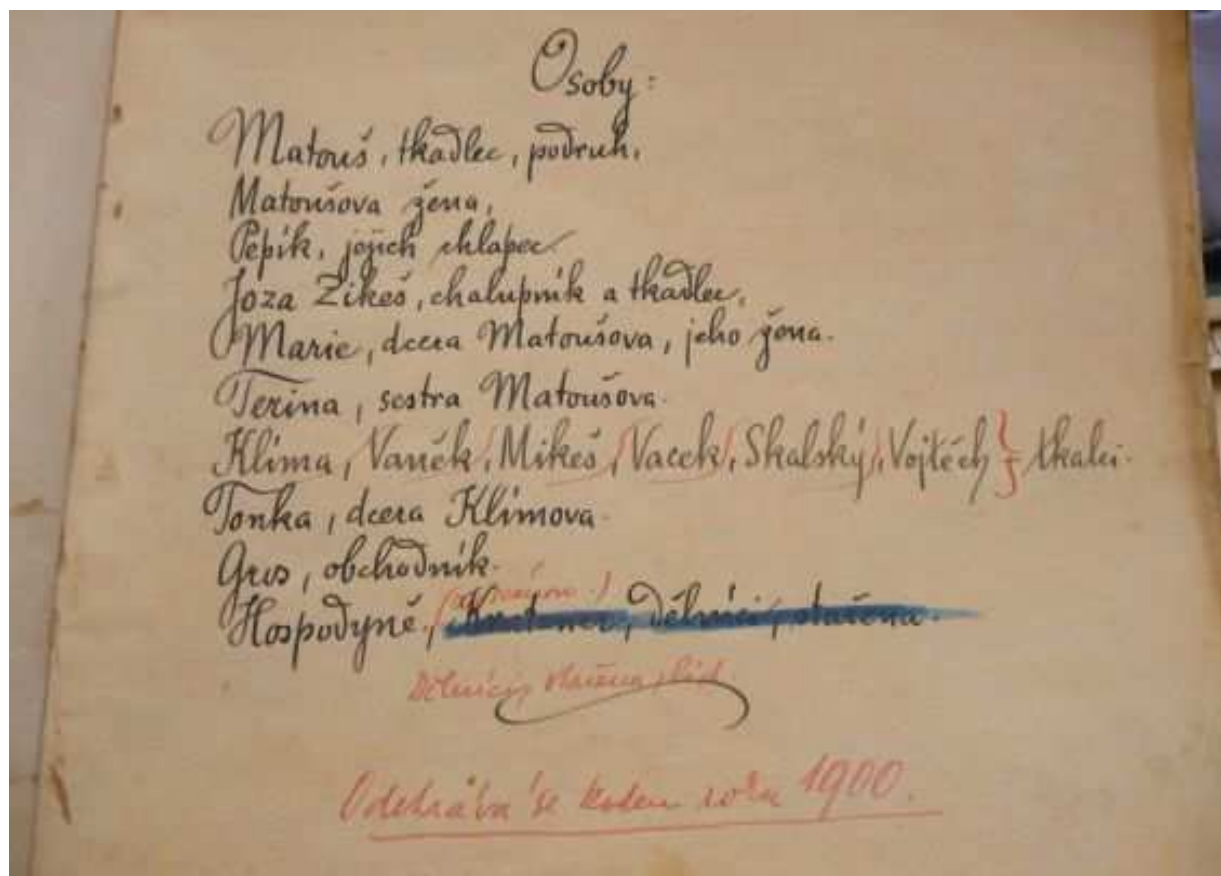 Osoby:
Matouš, tkadlec, podruh,
Matoušova žena,
Pepík, jejich chlapec.
Joza Zikeš, chalupník a tkadlec,
Marie, dcera Matoušova, jeho žena.
Terina, sestra Matoušova.
Klíma, Vaněk, Mikeš, Vacek, Skalský, Vojtěch } tkalci.
Tonka, dcera Klímova.
Gros, obchodník.
Hospodyně, dělníci, stařena.
Dělníci, stařena, lid.
Odehrává se kolem roku 1900.